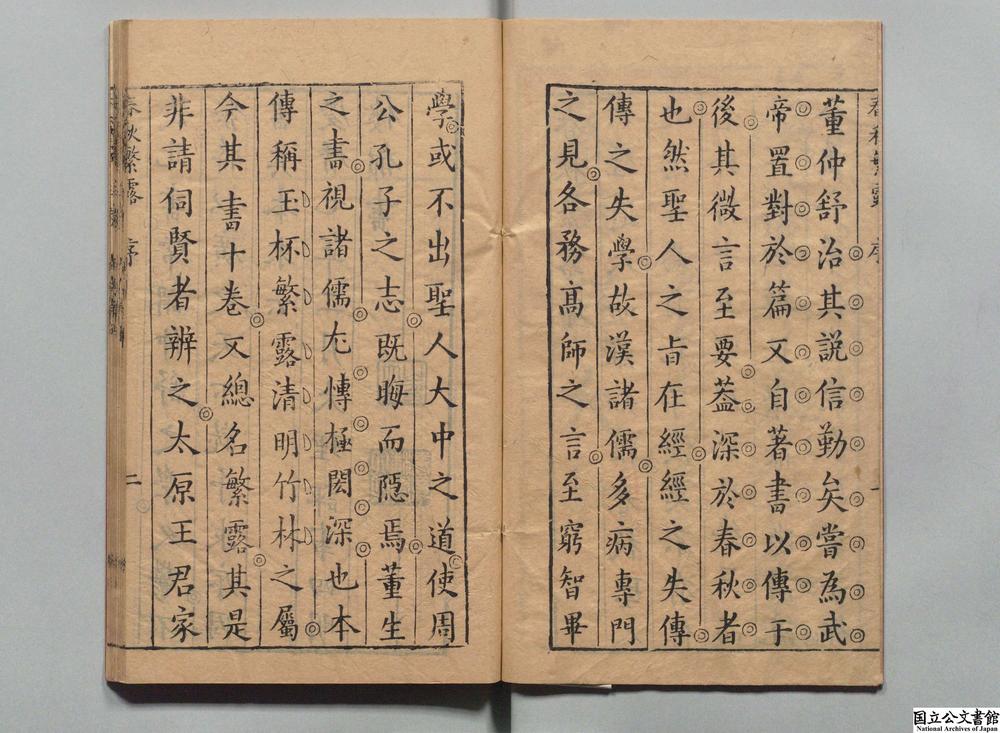 春秋繁露 序 一
董仲舒治其說信勤矣嘗為武
帝置對於篇又自著書以傳于
後其微言至要葢深於春秋者
也然聖人之旨在經經之失傳
傳之失學故漢諸儒多病專門
之見各務髙師之言至窮智畢
學或不出聖人大中之道使周
公孔子之志既晦而隠焉董生
之書視諸儒尤愽極閎深也本
傳稱玉杯繁露清明竹林之屬
今其書十卷又總名繁露其是
非請伺賢者辨之太原王君家
春秋繁露 序 二
国立公文書館
National Archives of Japan